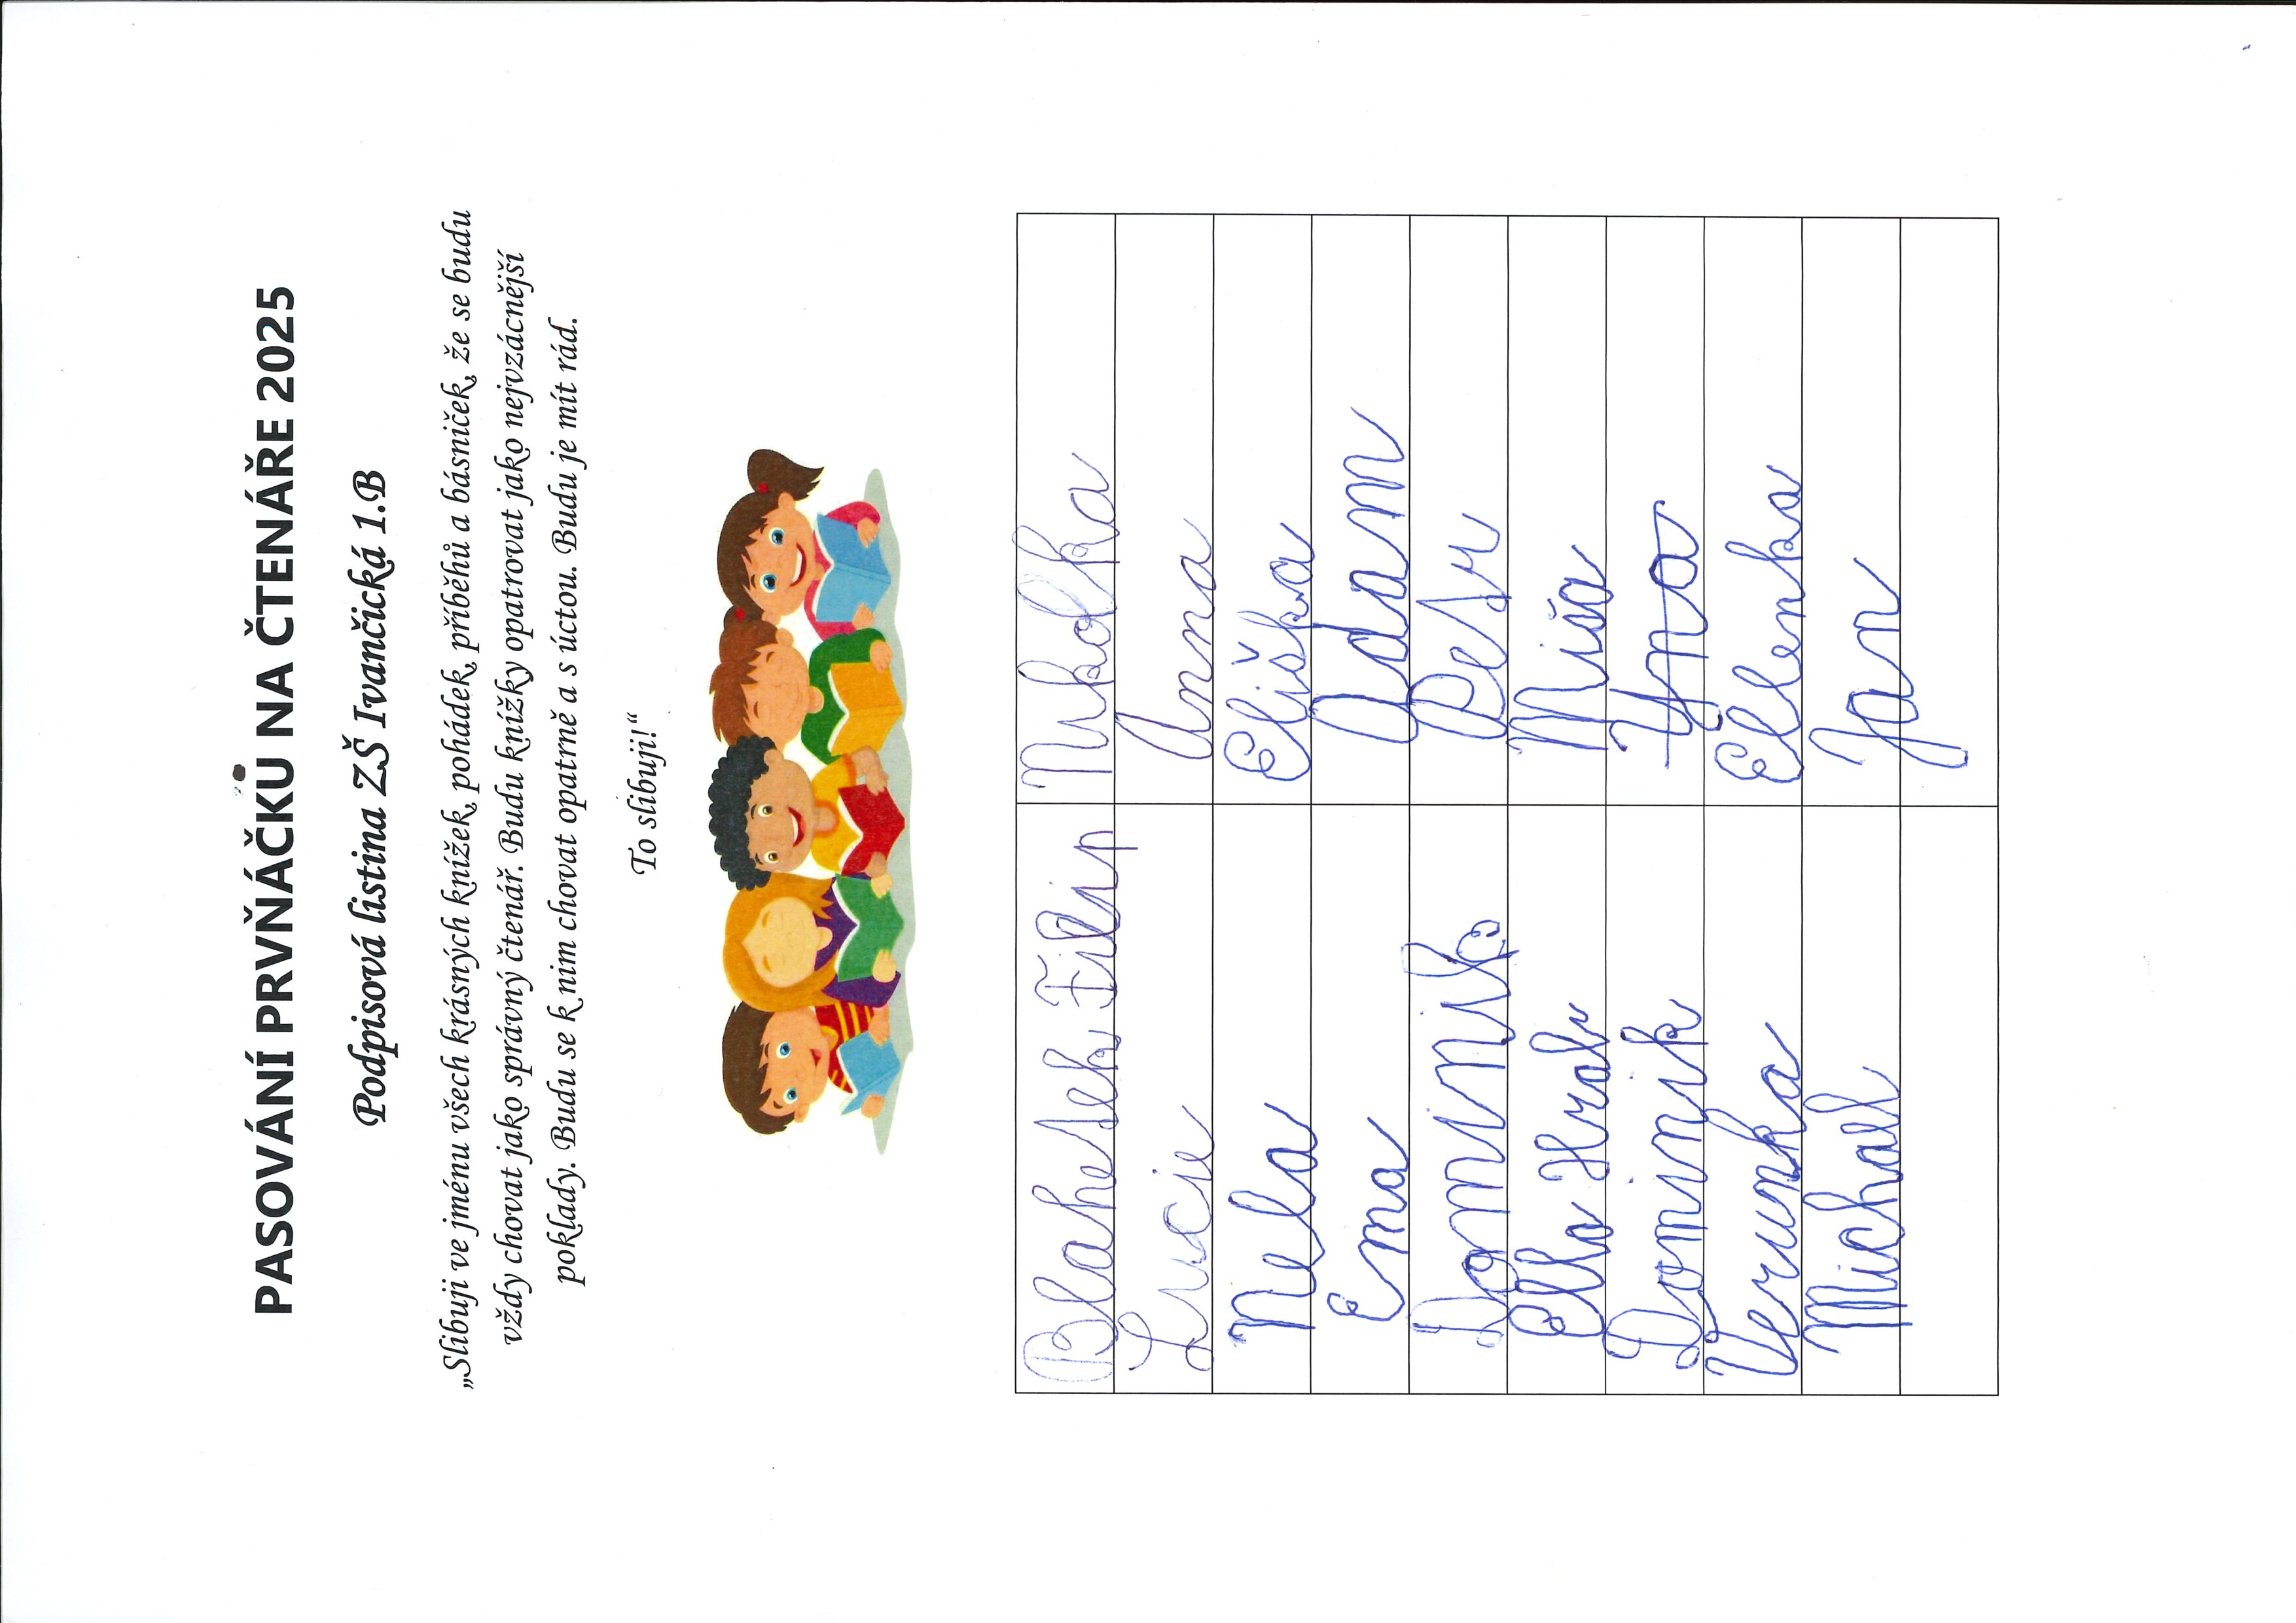 PASOVÁNÍ PRVŇÁČKŮ NA ČTENÁŘE 2025
Podpisová listina ZŠ Ivančická 1.B
„Slibuji ve jménu všech krásných knížek, pohádek, příběhů a básniček, že se budu
vždy chovat jako správný čtenář. Budu knížky opatrovat jako nejvzácnější
poklady. Budu se k nim chovat opatrně a s úctou. Budu je mít rád.
To slibuji!“
Filip Nikolka
Lucie Anna
Nela Eliška
Ema Adam
Dominik
Ella Míša
Dominik
Verunka Ellenka
Michall Jan